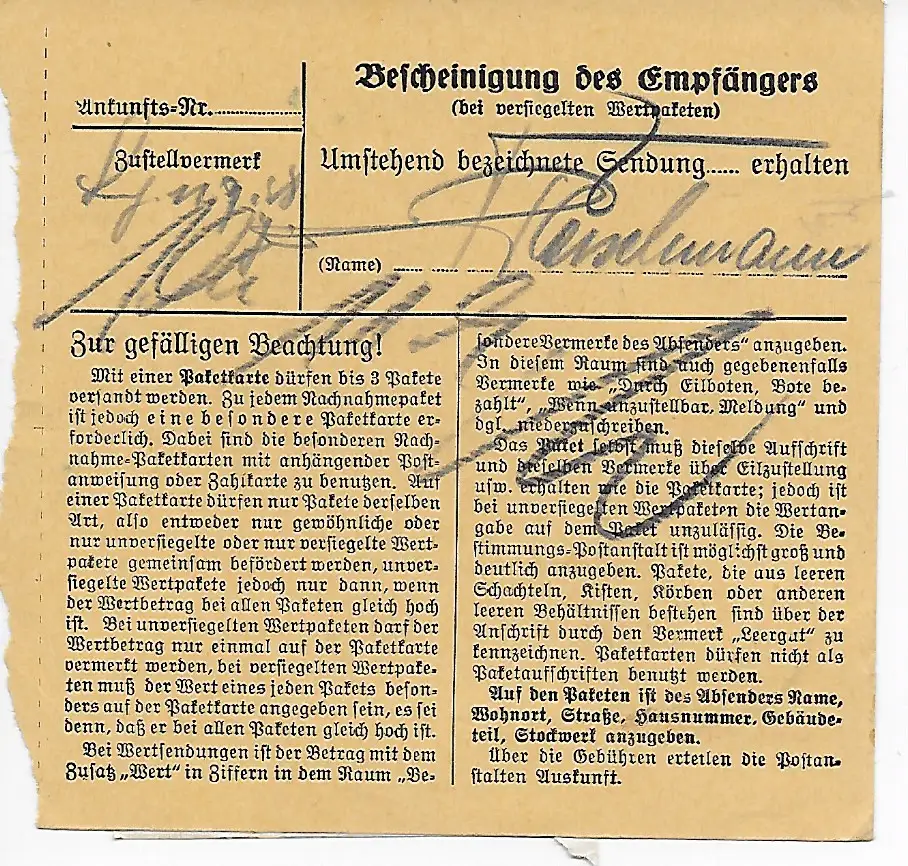 Ankunfts=Nr.
Zustellvermerk
Bescheinigung des Empfängers
(bei versiegelten Wertpaketen)
Umstehend bezeichnete Sendung...... erhalten
(Name)
Zur gefälligen Beachtung!
Mit einer Paketkarte dürfen bis 3 Pakete
versandt werden. Zu jedem Nachnahmepaket
ist jedoch eine besondere Paketkarte er=
forderlich. Dabei sind die besonderen Nach=
nahme=Paketkarten mit anhängender Post=
anweisung oder Zahlkarte zu benutzen. Auf
einer Paketkarte dürfen nur Pakete derselben
Art, also entweder nur gewöhnliche oder
nur unversiegelte oder nur versiegelte Wert=
pakete gemeinsam befördert werden, unver=
siegelte Wertpakete jedoch nur dann, wenn
der Wertbetrag bei allen Paketen gleich hoch
ist. Bei unversiegelten Wertpaketen darf der
Wertbetrag nur einmal auf der Paketkarte
vermerkt werden, bei versiegelten Wertpake=
ten muß der Wert eines jeden Pakets beson=
ders auf der Paketkarte angegeben sein, es sei
denn, daß er bei allen Paketen gleich hoch ist.
Bei Wertsendungen ist der Betrag mit dem
Zusatz „Wert“ in Ziffern in dem Raum „Be=
sondere Vermerke des Absenders“ anzugeben.
In diesem Raum sind auch gegebenenfalls
Vermerke wie „Durch Eilboten, Bote be=
zahlt“, „Wenn unzustellbar, Meldung“ und
dgl. niederzuschreiben.
Das Paket selbst muß dieselbe Aufschrift
und dieselben Vermerke über Eilzustellung
usw. erhalten wie die Paketkarte; jedoch ist
bei unversiegelten Wertpaketen die Wertan=
gabe auf dem Paket unzulässig. Die Be=
stimmungs=Postanstalt ist möglichst groß und
deutlich anzugeben. Pakete, die aus leeren
Schachteln, Kisten, Körben oder anderen
leeren Behältnissen bestehen sind über der
Anschrift durch den Vermerk „Leergut“ zu
kennzeichnen. Paketkarten dürfen nicht als
Paketaufschriften benutzt werden.
Auf den Paketen ist des Absenders Name,
Wohnort, Straße, Hausnummer, Gebäude=
teil, Stockwerk anzugeben.
Über die Gebühren erteilen die Postan=
stalten Auskunft.